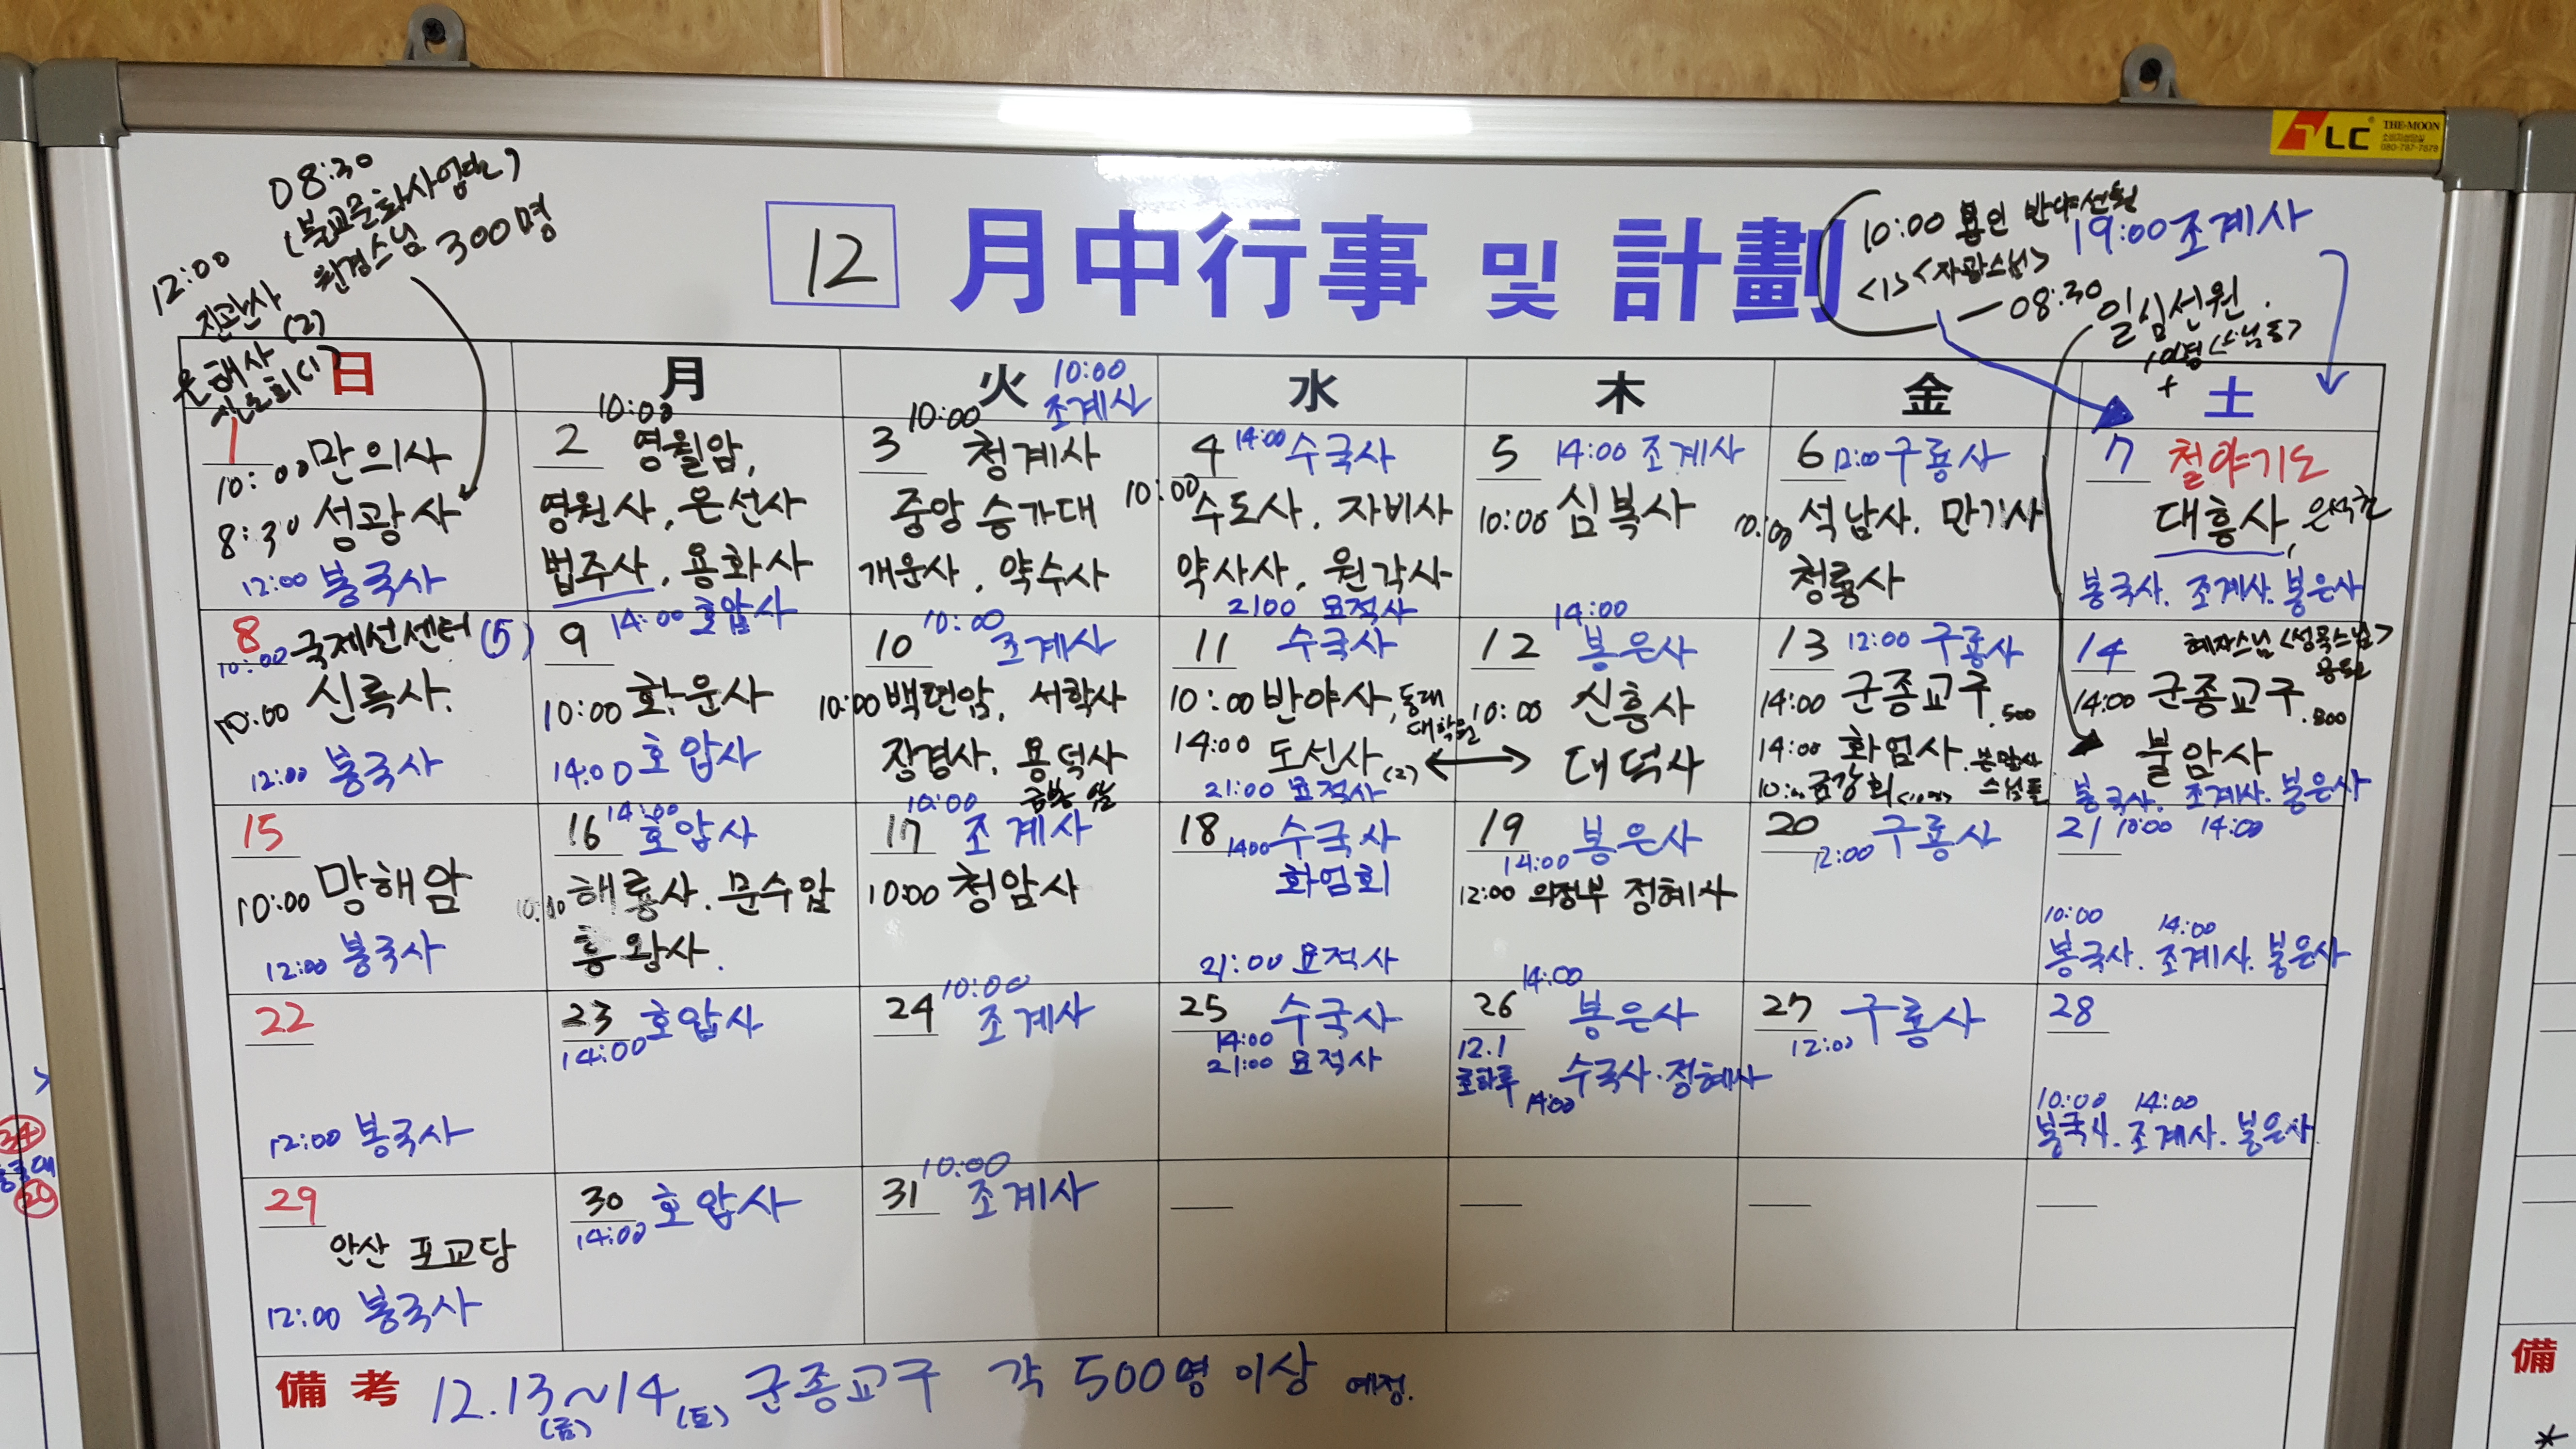 TLC THE-MOON
소비자상담실
080-787-7878
08:30
(불교문화사업단)
원경스님 300명
12:00
진관사 (2)
은해사
신도회(1)
12 月中行事 및 計劃
10:00 용인 반야선원
<1> <자광스님>
19:00 조계사
08:30 일심선원
+
日 月 火 水 木 金 土
1
10:00 만의사
8:30 성광사
12:00 봉국사
10:00
2 영월암,
영원사, 은선사
법주사, 용화사
14:00 호압사
10:00
조계사
10:00
3 청계사
중앙승가대
개운사, 약수사
4 14:00 수국사
10:00 수도사, 자비사
약사사, 원각사
2100 묘적사
5 14:00 조계사
10:00 심복사
6 12:00 구룡사
10:00 석남사. 만기사
청룡사
7 철야기도
대흥사, 은석
봉국사. 조계사. 봉은사
8
10:00 국제선센터 (5)
10:00 신륵사.
12:00 봉국사
9
10:00 화운사
14:00 호압사
10 10:00 조계사
10:00 백련암, 서학사
장경사, 용덕사
11 수국사
10:00 반야사, 동대
대학원
14:00 도선사 (2)
21:00 묘적사
14:00
12 봉은사
10:00 신흥사
대덕사
13 12:00 구룡사
14:00 군종교구. 500
14:00 화엄사. 본말사
스님들
10:00 금강회
14 혜자스님 <성묵스님>
14:00 군종교구. 800
불암사
봉국사. 조계사. 봉은사
15
10:00 망해암
12:00 봉국사
16 14:00 호압사
10:00 해룡사. 문수암
흥왕사.
10:00
17 조계사
10:00 청암사
18 14:00 수국사
화엄회
21:00 묘적사
19 봉은사
14:00
12:00 의정부 정혜사
20 12:00 구룡사
21 10:00 14:00
10:00 14:00
봉국사. 조계사. 봉은사
22
12:00 봉국사
23 호압사
14:00
24 10:00 조계사
25 수국사
14:00
21:00 묘적사
14:00
26 봉은사
12.1
초하루 14:00 수국사·정혜사
27 구룡사
12:00
28
10:00 14:00
봉국사. 조계사. 봉은사
29
안산 포교당
12:00 봉국사
30 호압사
14:00
10:00
31 조계사
備考 12.13~14 군종교구 각 500명 이상 예정.
(금) (토)
34
29
備